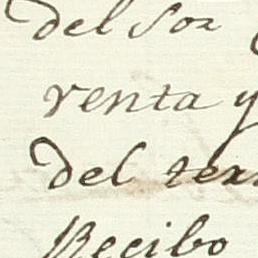 del Sor
renta y
del ter
Recibo